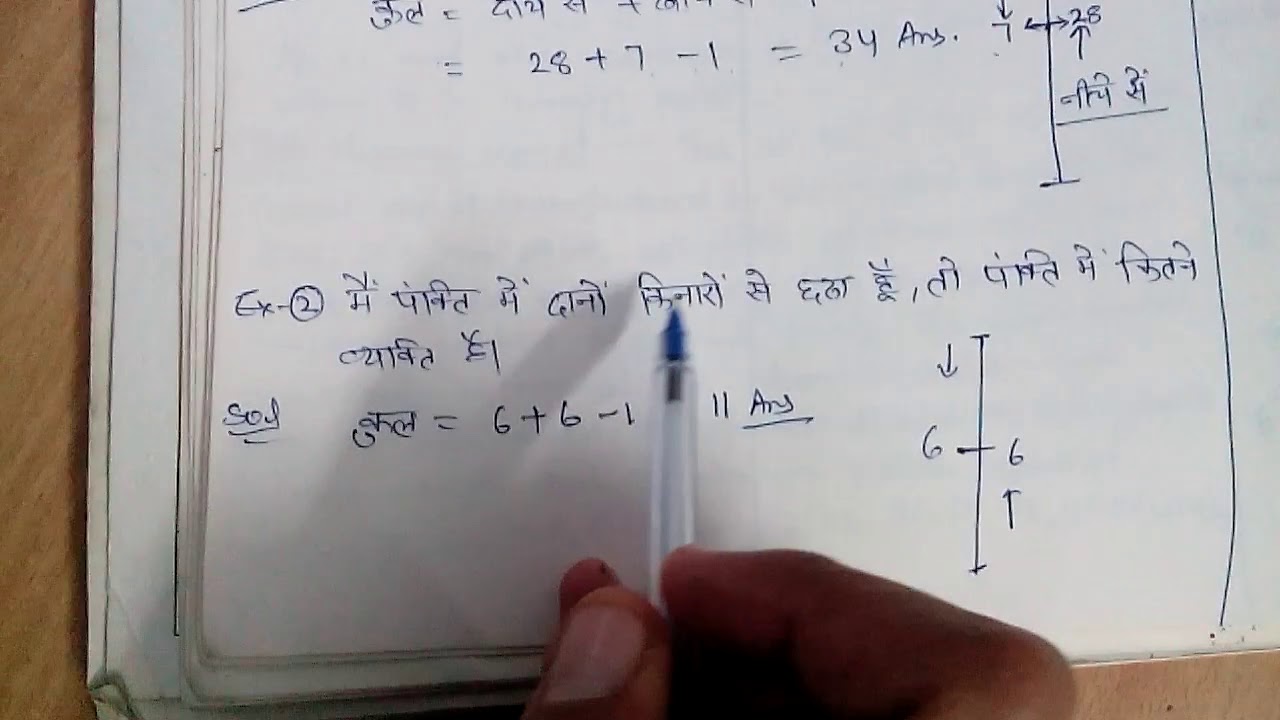 कुल = दाये से +
= 28 + 7 - 1 = 34 Ans.
7 28
नीचे से
Ex-② मैं पंक्ति में दानों किनारों से छठा हूँ, तो पंक्ति में कितने
व्यक्ति है।
Sol कुल = 6 + 6 - 1 11 Ans
6 6